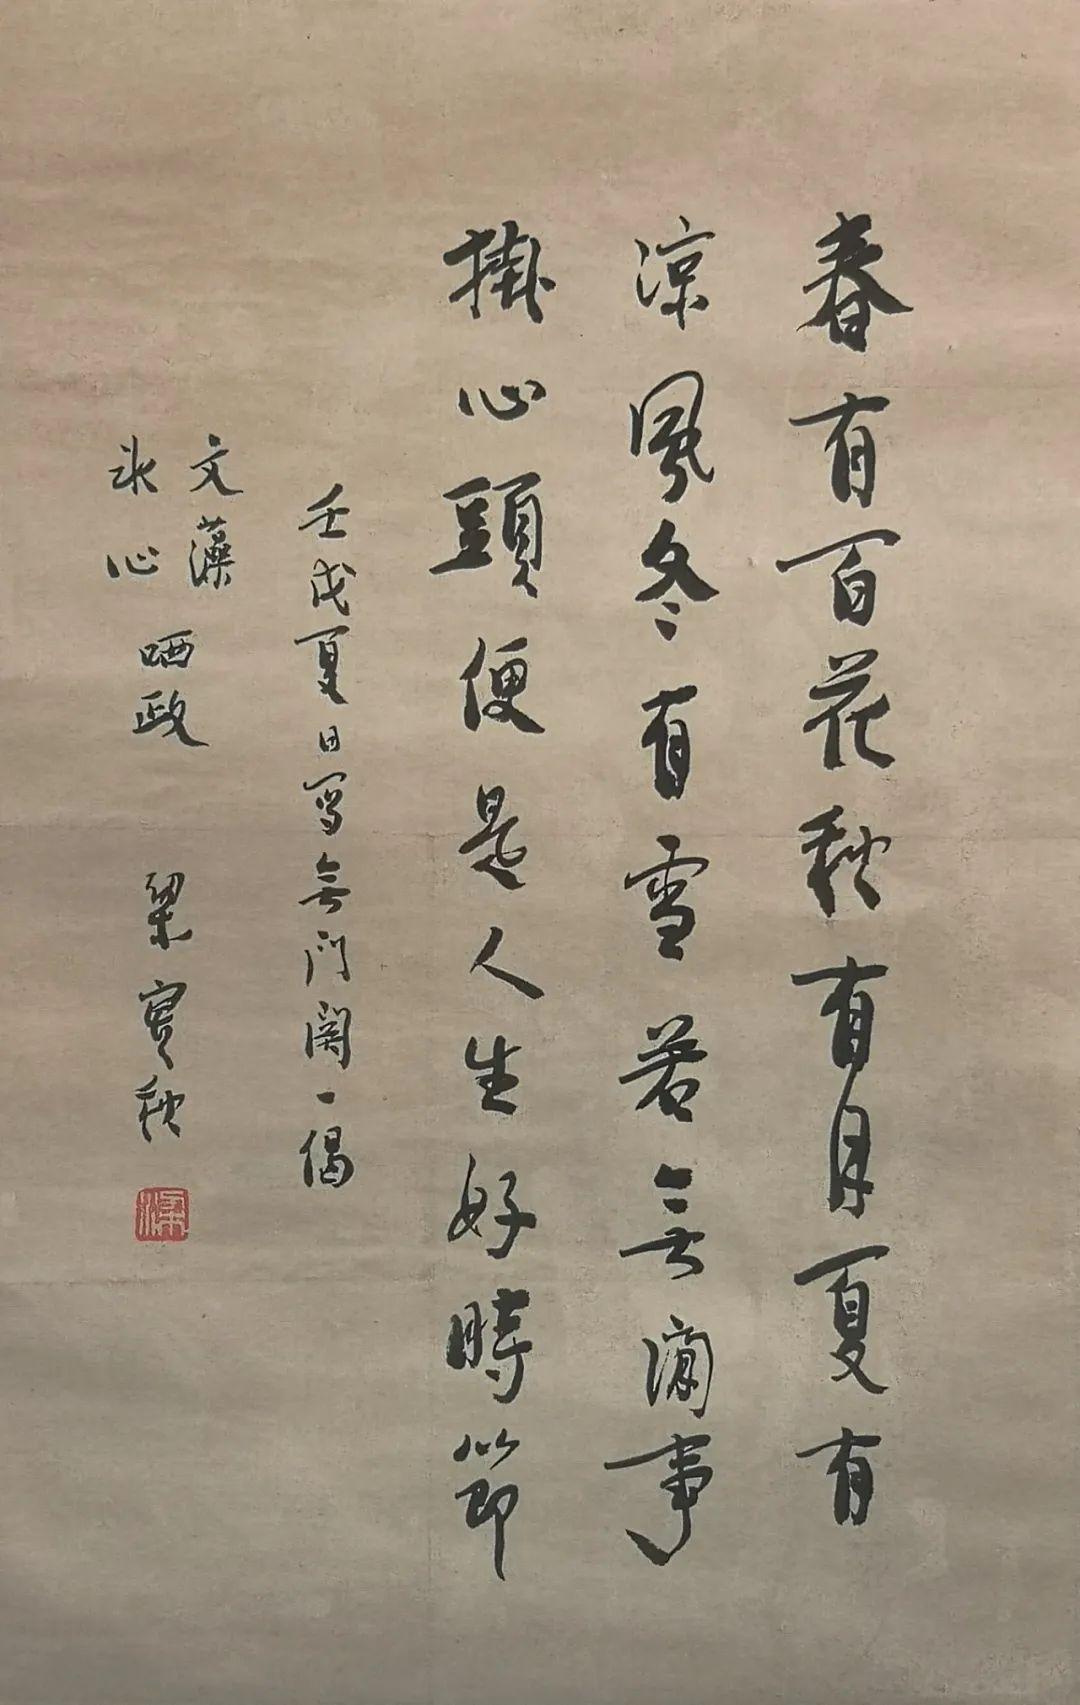 春有百花秋有月夏有
涼風冬有雪若無閒事
掛心頭便是人生好時節
壬戌夏日写無門関一偈
文藻
冰心
哂政
梁實秋
梁